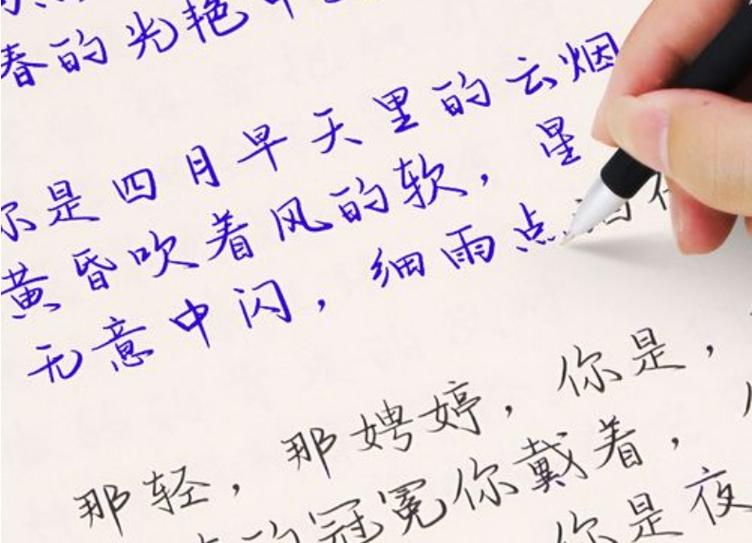 春的光艳中
你是四月早天里的云烟
黄昏吹着风的软，星
无意中闪，细雨点
那轻，那娉婷，你是，
的冠冕你戴着，
你是夜